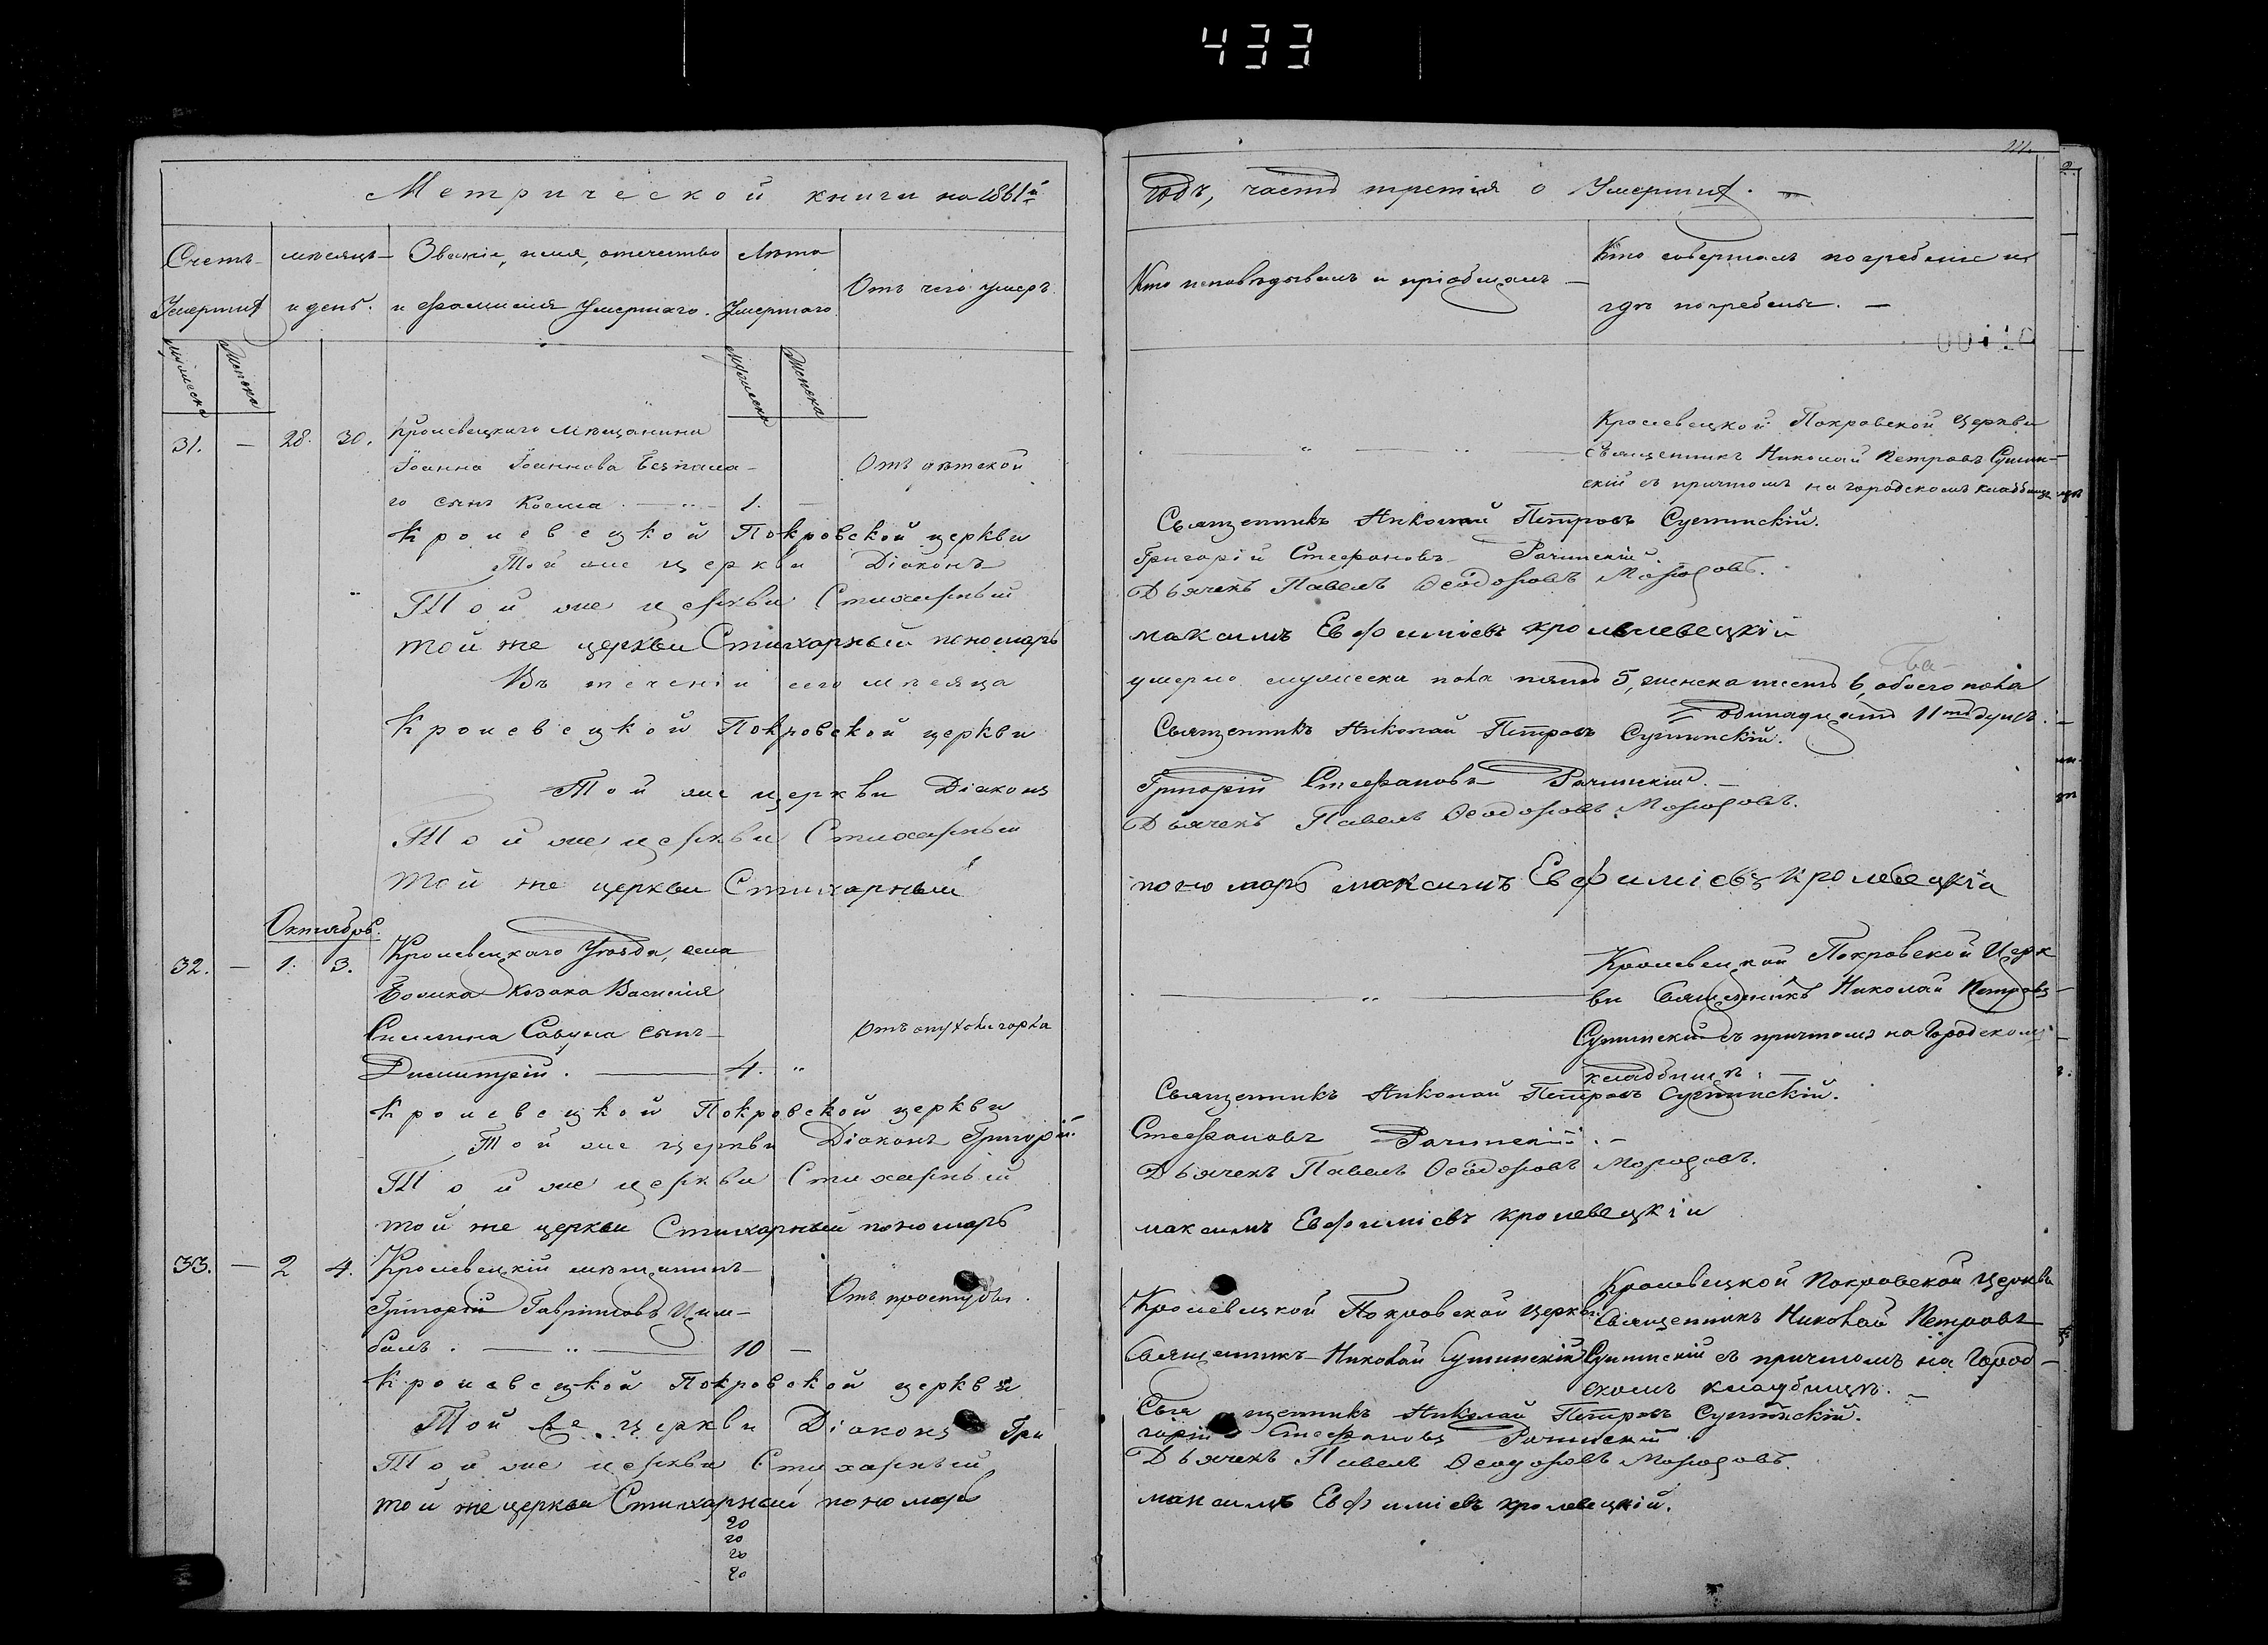 433
Метрической книги на 1861й
Счетъ
Умершихъ
мѣсяцъ
и день.
Званіе, имя, отчество
и фамилія Умершаго.
Лѣта
Умершаго
Отъ чего умеръ.
мужеска
женска
мужеска
женска
31. — 28. 30. Кролевецкаго мѣщанина
Іоанна Іоаннова
го сынъ Косма. 1. —
Отъ
Кролевецкой Покровской церкви
Той же церкви Діаконъ
Той же церкви Стихарный
той же церкви Стихарный пономарь
Въ теченіи сего мѣсяца
Кролевецкой Покровской церкви
Той же церкви Діаконъ
Той же церкви Стихарный
той же церкви Стихарный
Октябрь.
32. — 1. 3. Кролевецкаго Уѣзда, села
козака Василія
Савуна сынъ
Димитрій. 4. "
Отъ
Кролевецкой Покровской церкви
Той же церкви Діаконъ Григорій
Той же церкви Стихарный
той же церкви Стихарный пономарь
33. — 2 4. Кролевецкій мѣщанинъ
Григорій Гавріиловъ Цим-
балъ. 10 —
Отъ простуды.
Кролевецкой Покровской церкви
Той же церкви Діаконъ Гри
Той же церкви Стихарный
той же церкви Стихарный пономарь
20
20
20
20
111.
годъ, часть третія о Умершихъ. —
Кто исповѣдывалъ и пріобщалъ
Кто совершалъ погребеніе и
гдѣ погребены. —
00110
Кролевецкой Покровской Церкви
Священникъ Николай Петровъ Сущин-
скій съ причтомъ на городскомъ кладбищѣ
Священникъ Николай Петровъ Сущинскій.
Григорій Стефановъ Рачинскій
Дьячекъ Павелъ Ѳеодоровъ Морозовъ.
максимъ Евфиміевъ кролевецкій
умерло мужеска пола пять 5, женска шесть 6, обоего пола
одинадцать 11ть душъ.
Священникъ Николай Петровъ Сущинскій.
Григорій Стефановъ Рачинскій. —
Дьячекъ Павелъ Ѳеодоровъ Морозовъ.
пономарь максимъ Евфиміевъ кролевецкій
Кролевецкой Покровской Церк
ви Священникъ Николай Петровъ
Сущинскій съ причтомъ на Городскомъ
кладбищѣ.
Священникъ Николай Петровъ Сущинскій.
Стефановъ Рачинскій. —
Дьячекъ Павелъ Ѳеодоровъ Морозовъ.
максимъ Евфиміевъ кролевецкій
Кролевецкой Покровской Церкви
Священникъ Николай Сущинскій
Кролевецкой Покровской Церкви
Священникъ Николай Петровъ
Сущинскій съ причтомъ на Город-
скомъ кладбищѣ. —
Священникъ Николай Петровъ Сущинскій.
горій Стефановъ Рачинскій
Дьячекъ Павелъ Ѳеодоровъ Морозовъ.
максимъ Евфиміевъ кролевецкій.